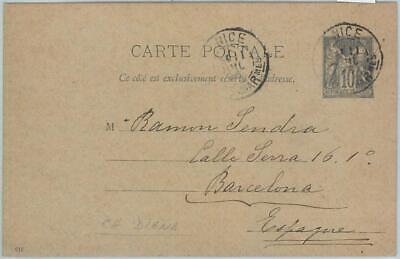 NICE
CARTE POSTALE
Ce côté est exclusivement réservé à l'adresse.
NICE
10
M Ramon Sendra
Calle Serra 16, 1º
Barcelona
Espagne